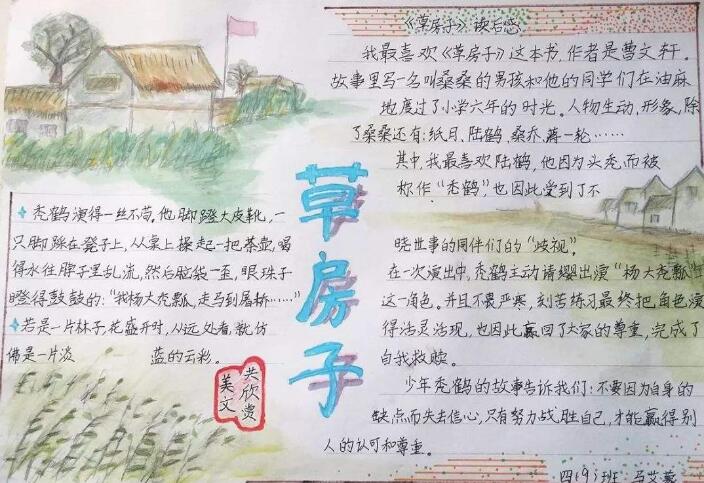 《草房子》读后感
我最喜欢《草房子》这本书,作者是曹文轩。
故事里写一名叫桑桑的男孩和他的同学们在油麻
地度过了小学六年的时光。人物生动,形象,除
了桑桑还有:纸月、陆鹤、桑乔、蒋一轮……
其中,我最喜欢陆鹤,他因为头秃而被
称作“秃鹤”,也因此受到了不
晓世事的同伴们的“歧视”。
在一次演出中,秃鹤主动请缨出演“杨大秃瓢”
这一角色。并且不畏严寒,刻苦练习最终把角色演
得活灵活现,也因此赢回了大家的尊重,完成了
自我救赎。
少年秃鹤的故事告诉我们:不要因为自身的
缺点而失去信心,只有努力战胜自己,才能赢得别
人的认可和尊重。
四(9)班 马艾
草房子
秃鹤演得一丝不苟,他脚蹬大皮靴,一
只脚踩在凳子上,从桌上操起一把茶壶,喝
得水往脖子里乱流,然后脑袋一歪,眼珠子
瞪得鼓鼓的:“我杨大秃瓢,走马到屠桥……”
若是一片林子,花盛开时,从远处看,就仿
佛是一片淡 蓝的云彩。
美文
共欣赏